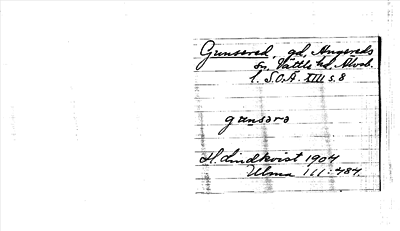 Gunsered, gd, Angereds
sn, Vättle hd, Älvsb.
l. S.O.Ä. XIII s. 8
gunsərə
H Lindkvist 1904
Ulma 111:484.